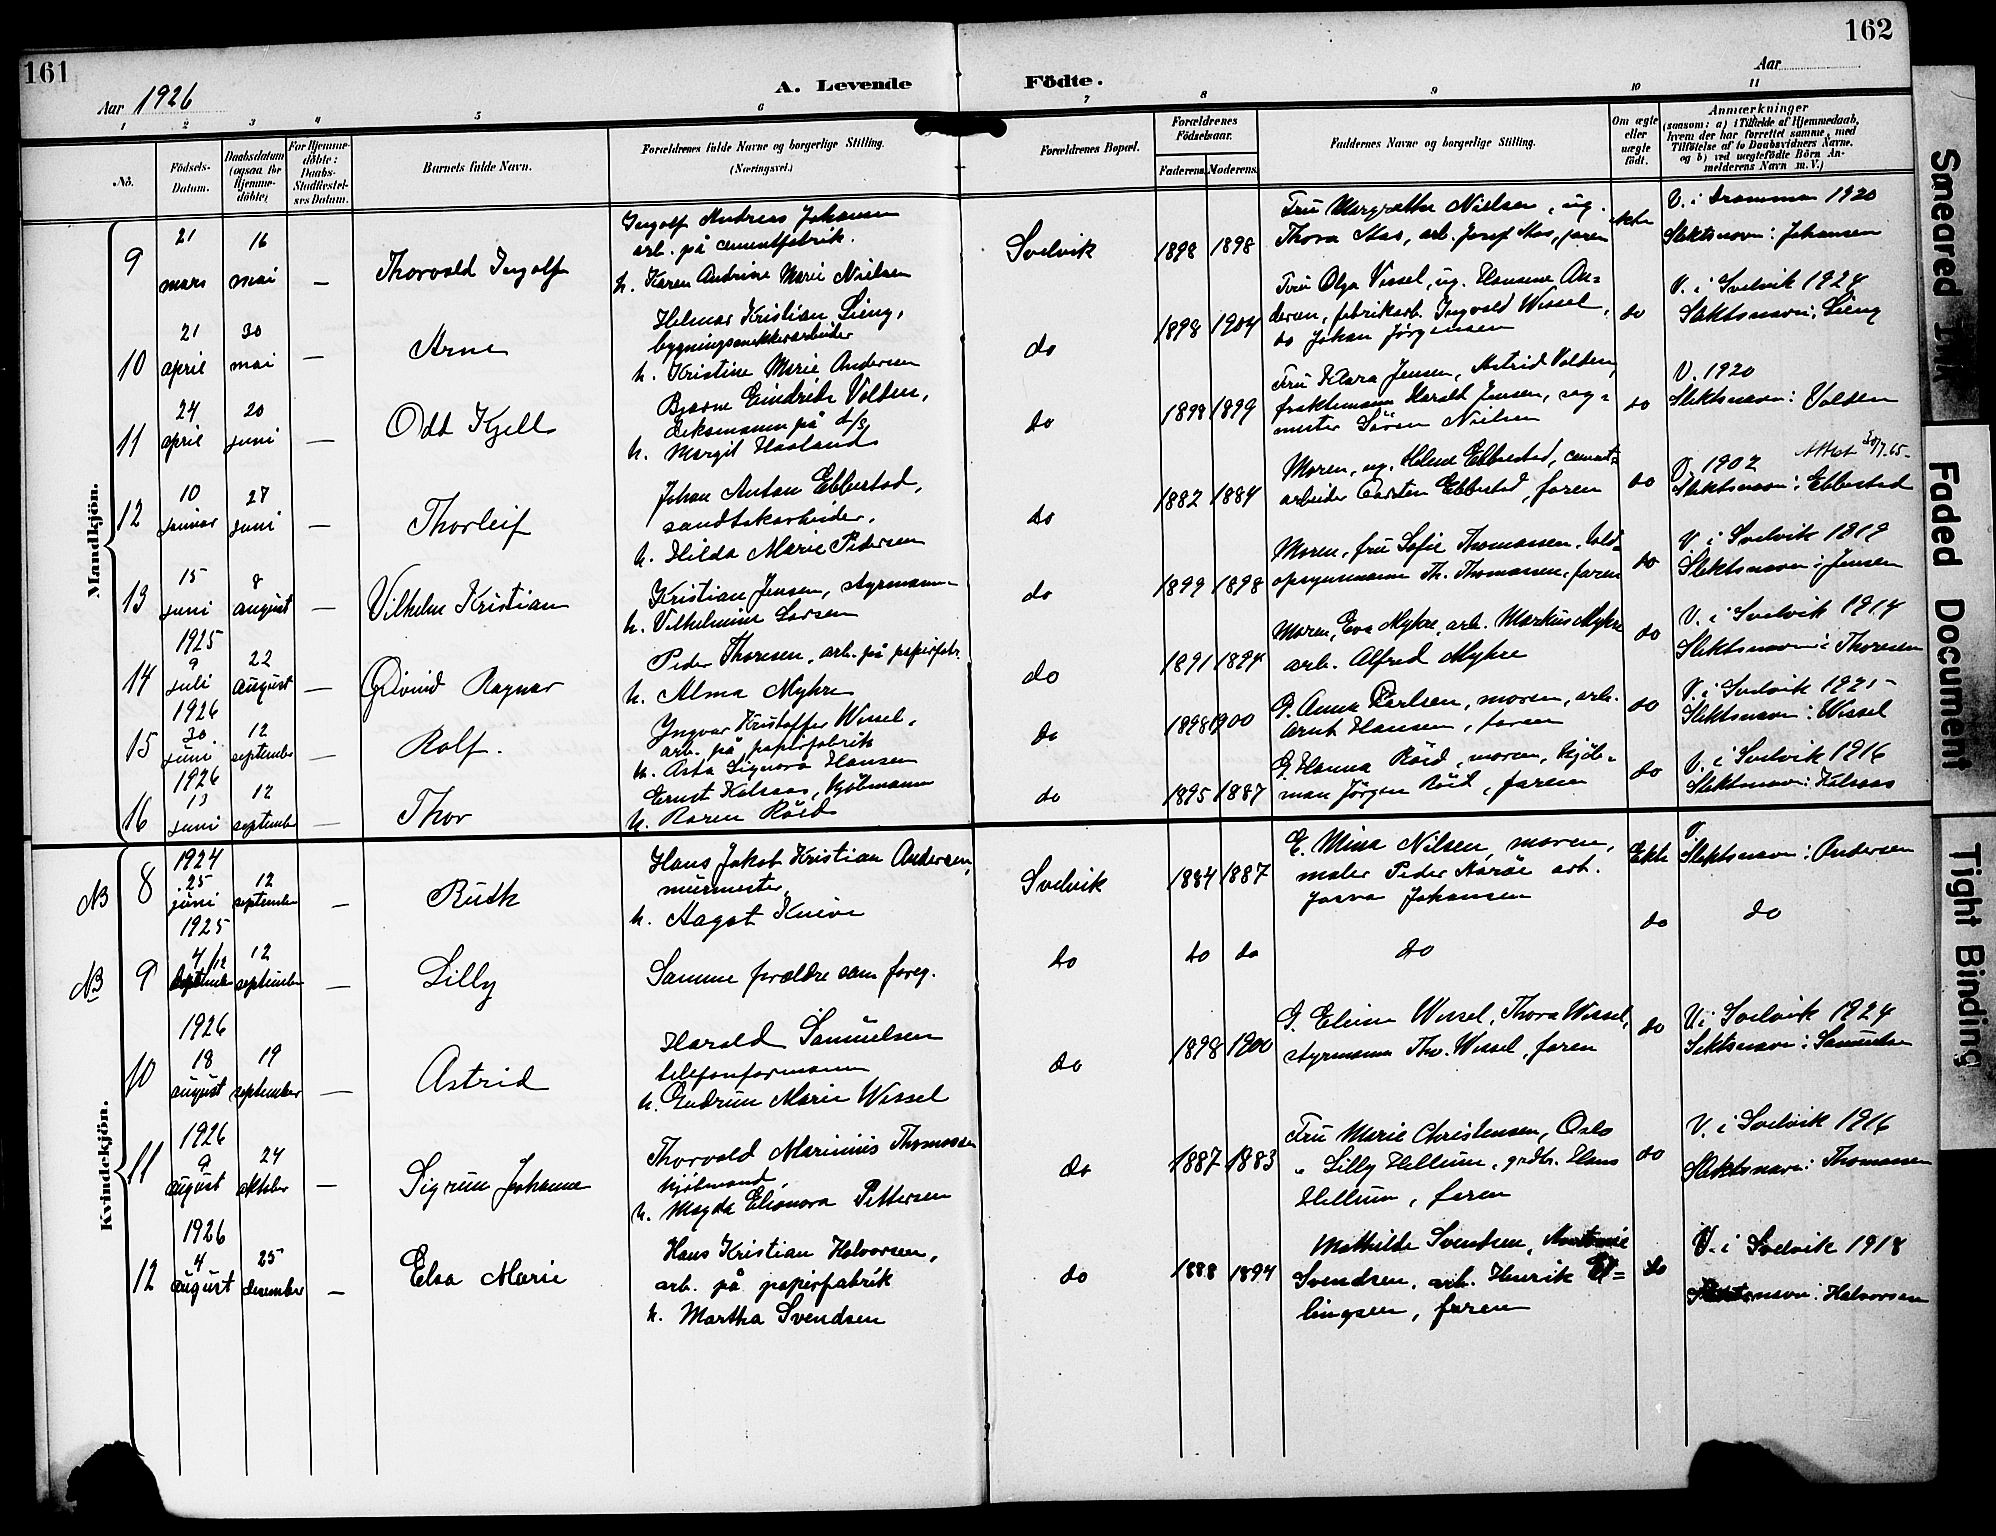 161
162
Aar 1926
A. Levende Födte.
Aar
1 2 3 4 5 6 7 8 9 10 11
No.
Födsels-
Datum.
Daabsdatum
(ogsaa for
Hjemme-
döbte)
For Hjemme-
döbte:
Daabs-
Stadfæstel-
ses Datum.
Barnets fulde Navn.
Forældrenes fulde Navne og borgerlige Stilling.
(Næringsvei.)
Forældrenes Bopæl.
Forældrenes
Födselsaar.
Faderens. Moderens.
Faddernes Navne og borgerlige Stilling.
Om ægte
eller
uægte
födt.
Anmærkninger
(saasom: a) i Tilfælde af Hjemmedaab,
hvem der har forrettet samme, med
Tilföielse af to Daabsvidners Navne,
og b) ved uægtefödte Börn An-
melderens Navn m. V.)
Mandkjön.
9
21
mars
16
mai
—
Thorvald Ingolf
Ingolf Andreas Johansen
arb. på cementfabrik.
h. Karen Andrine Marie Nielsen
Svelvik
1898 1898
Fru Margrethe Nielsen, ug.
Thora Aas, arb. Josef Aas, faren
ekte
V. i Drammen 1920
Slektsnavn: Johansen
10
21
april
30
mai
—
Arne
Helmar Kristian Lieng,
bygningssnekkerarbeider
h. Kristine Marie Andersen
do
1898 1904
Fru Olga Wessel, ug. Hansine An-
dersen, fabrikarb. Ingvald Wessel,
do Johan Jørgensen
do
V. i Svelvik 1924
Slektsnavn: Lieng
11
24
april
20
juni
—
Odd Kjell
Bjarne Eindride Volden,
deksmann på d/s
h. Margit Haaland
do
1898 1899
Fru Klara Jensen, Astrid Volden,
fraktemann Harald Jensen, seg-
mester Sören Nielsen
do
V. 1920
Slektsnavn: Volden
12
10
januar
27
juni
—
Thorleif
Johan Anton Ebbestad,
sandtakarbeider.
h. Hilda Marie Pedersen
do
1882 1884
Moren, ug. Helene Ebbestad, cement-
arbeider Carsten Ebbestad, faren
do
V. 1902
Attest 30/7.65-
Slektsnavn: Ebbestad
13
15
juni
8
august
—
Vilhelm Kristian
Kristian Jensen, styrmann
h. Vilhelmine Larsen
do
1899 1898
Moren, fru Sofie Thomassen, told-
opsynsmann Th. Thomassen, faren
do
V. i Svelvik 1919
Slektsnavn: Jensen
14
1925
9
juli
22
august
—
Øivind Ragnar
Peder Thoresen, arb. på papirfabr.
h. Alma Myhre
do
1891 1894
Moren, Eva Myhre, arb. Markus Myhre
arb. Alfred Myhre
do
V. i Svelvik 1914
Slektsnavn: Thoresen
15
1926
30
juni
12
september
Rolf.
Ingvar Kristoffer Wessel,
arb. på papirfabrik
h. Asta Signora Hansen
do
1898 1900
G. Anna Carlsen, moren, arb.
Arnt Hansen, faren
do
V. i Svelvik 1921-
Slektsnavn: Wessel
16
1926
13
juni
12
september
—
Thor
Ernst Kolsaas, kjøbmann
h. Karen Röed
do
1895 1887
G. Hanna Röed, moren, kjøb-
man Jörgen Röed, faren
do
V. i Svelvik 1916
Slektsnavn: Kolsaas
Kvindekjön.
NB
8
1924
25
juni
12
september
—
Ruth
Hans Jakob Kristian Andersen,
murmester,
h. Aagot Knive
Svelvik
1884 1887
E. Mina Nilsen, moren,
maler Peder Naröe arb.
Josva Johansen
Ekte
V
Slektsnavn: Andersen
NB
9
1925
4/12
september
12
september
—
Lilly
Samme forældre som foreg.
do
do do
do
do
do
10
1926
18
august
19
september
—
Astrid
Harald Samuelsen
telefonformann
h. Gudrun Marie Wessel
do
1898 1900
G. Elise Wessel, Thora Wessel,
styrmann Thv. Wessel, faren
do
V. i Svelvik 1924
Slektsnavn: Samuelsen
11
1926
9
august
24
oktober
—
Sigrun Johanne
Thorvald Marinius Thomassen
kjöbmand,
h. Magda Elionora Pettersen
do
1887 1883
Fru Marie Christensen, Oslo
" Lilly Hellum, grdbr. Hans
Hellum, faren
do
V. i Svelvik 1916
Slektsnavn: Thomassen
12
1926
4
august
25
desember
—
Elsa Marie
Hans Kristian Halvorsen,
arb. på papirfabrik
h. Martha Svendsen
do
1888 1894
Mathilde Svendsen,
Svendsen, arb. Henrik El-
lingsen, faren
do
V. i Svelvik 1918
Slektsnavn: Halvorsen
Smeared Ink
Faded Document
Tight Binding